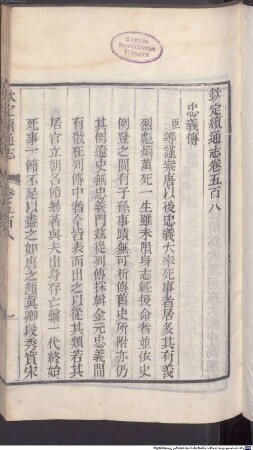 欽定續通志卷五百八
忠義傳
臣等謹案唐以後忠義大率死事者居多其有義
烈彪炳萬死一生雖未隕身志輕授命者並依史
例登之間有子孫事蹟無可析傳舊史所附亦仍
其例遼史無忠義門茲從列傳採輯金元忠義間
有散在列傳中者今皆表而出之以從其類若其
居官立朝名節暴著與夫出身存亡繫一代終始
死事一節不足以盡之如唐之顏真卿段秀實宋
欽定續通志 卷五百八 一